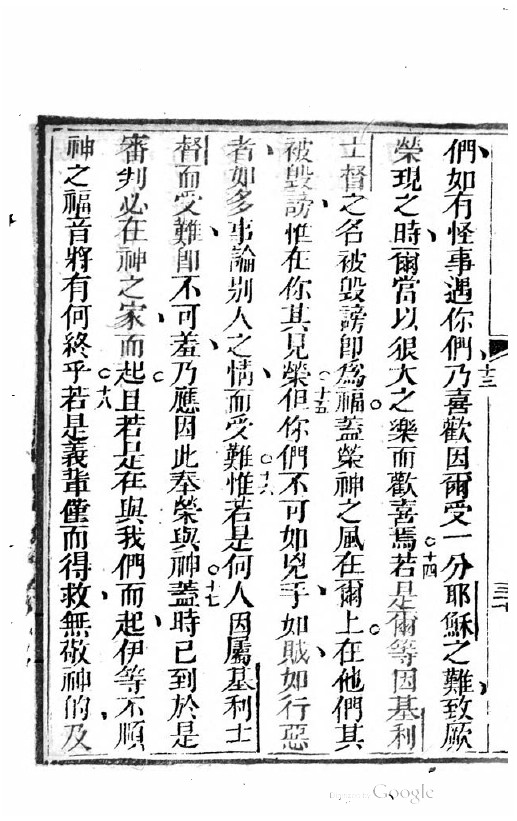 們如有怪事遇你們乃喜歡因爾受一分耶穌之難致厥
十三
榮現之時爾當以狠大之樂而歡喜焉若是爾等因基利
十四
士督之名被毀謗卽爲福蓋榮神之風在爾上在他們其
被毀謗惟在你其見榮但你們不可如兇手如賊如行惡
十五
者如多事論别人之情而受難惟若是何人因屬基利士
十六
督而受難卽不可羞乃應因此奉榮與神蓋時已到於是
十七
審判必在神之家而起且若是在與我們而起伊等不順
神之福音將有何終乎若是義輩僅而得救無敬神的及
十八
三十
Digitized by Google